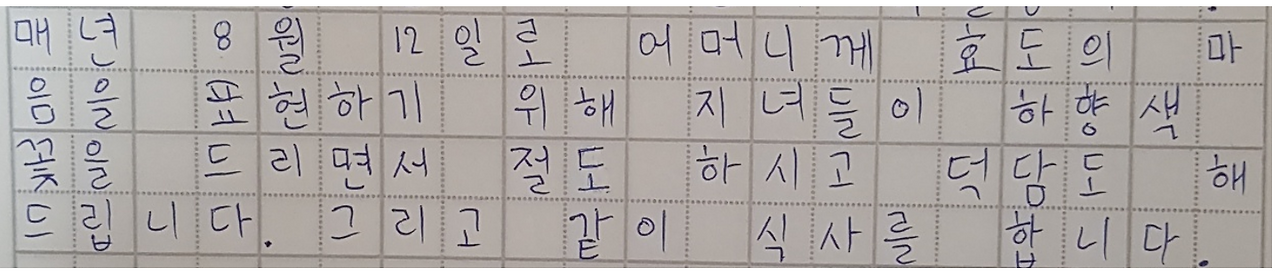 매년 8월 12일로 어머니께 효도의 마
음을 표현하기 위해 지녀들이 하향색
꽃을 드리면서 절도 하시고 덕담도 해
드립니다. 그리고 같이 식사를 합니다.